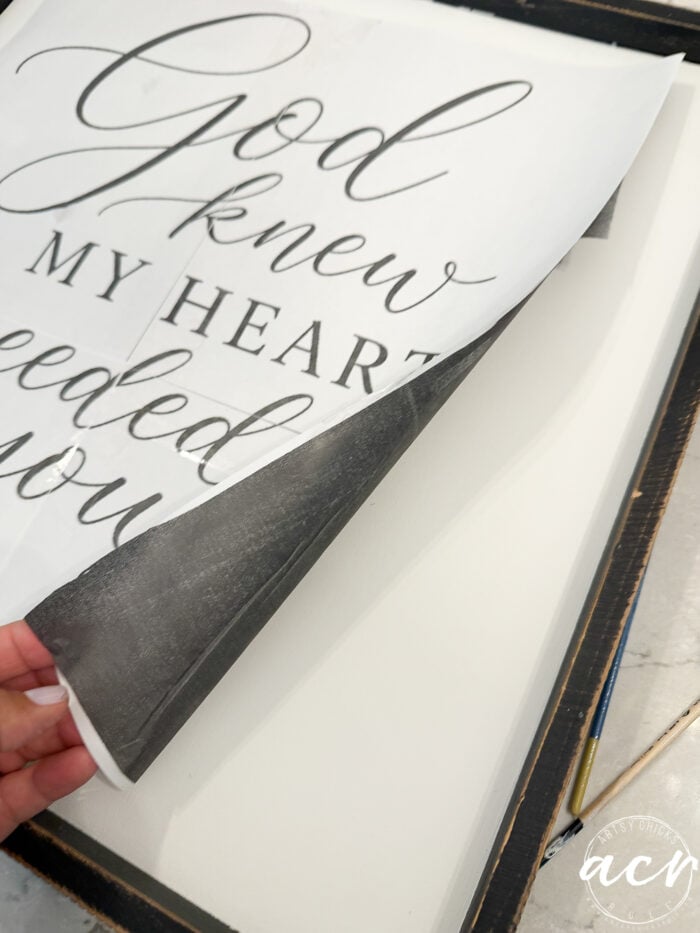 God
knew
MY HEART
eeded
you
ARTSY CHICKS
acr
RULE